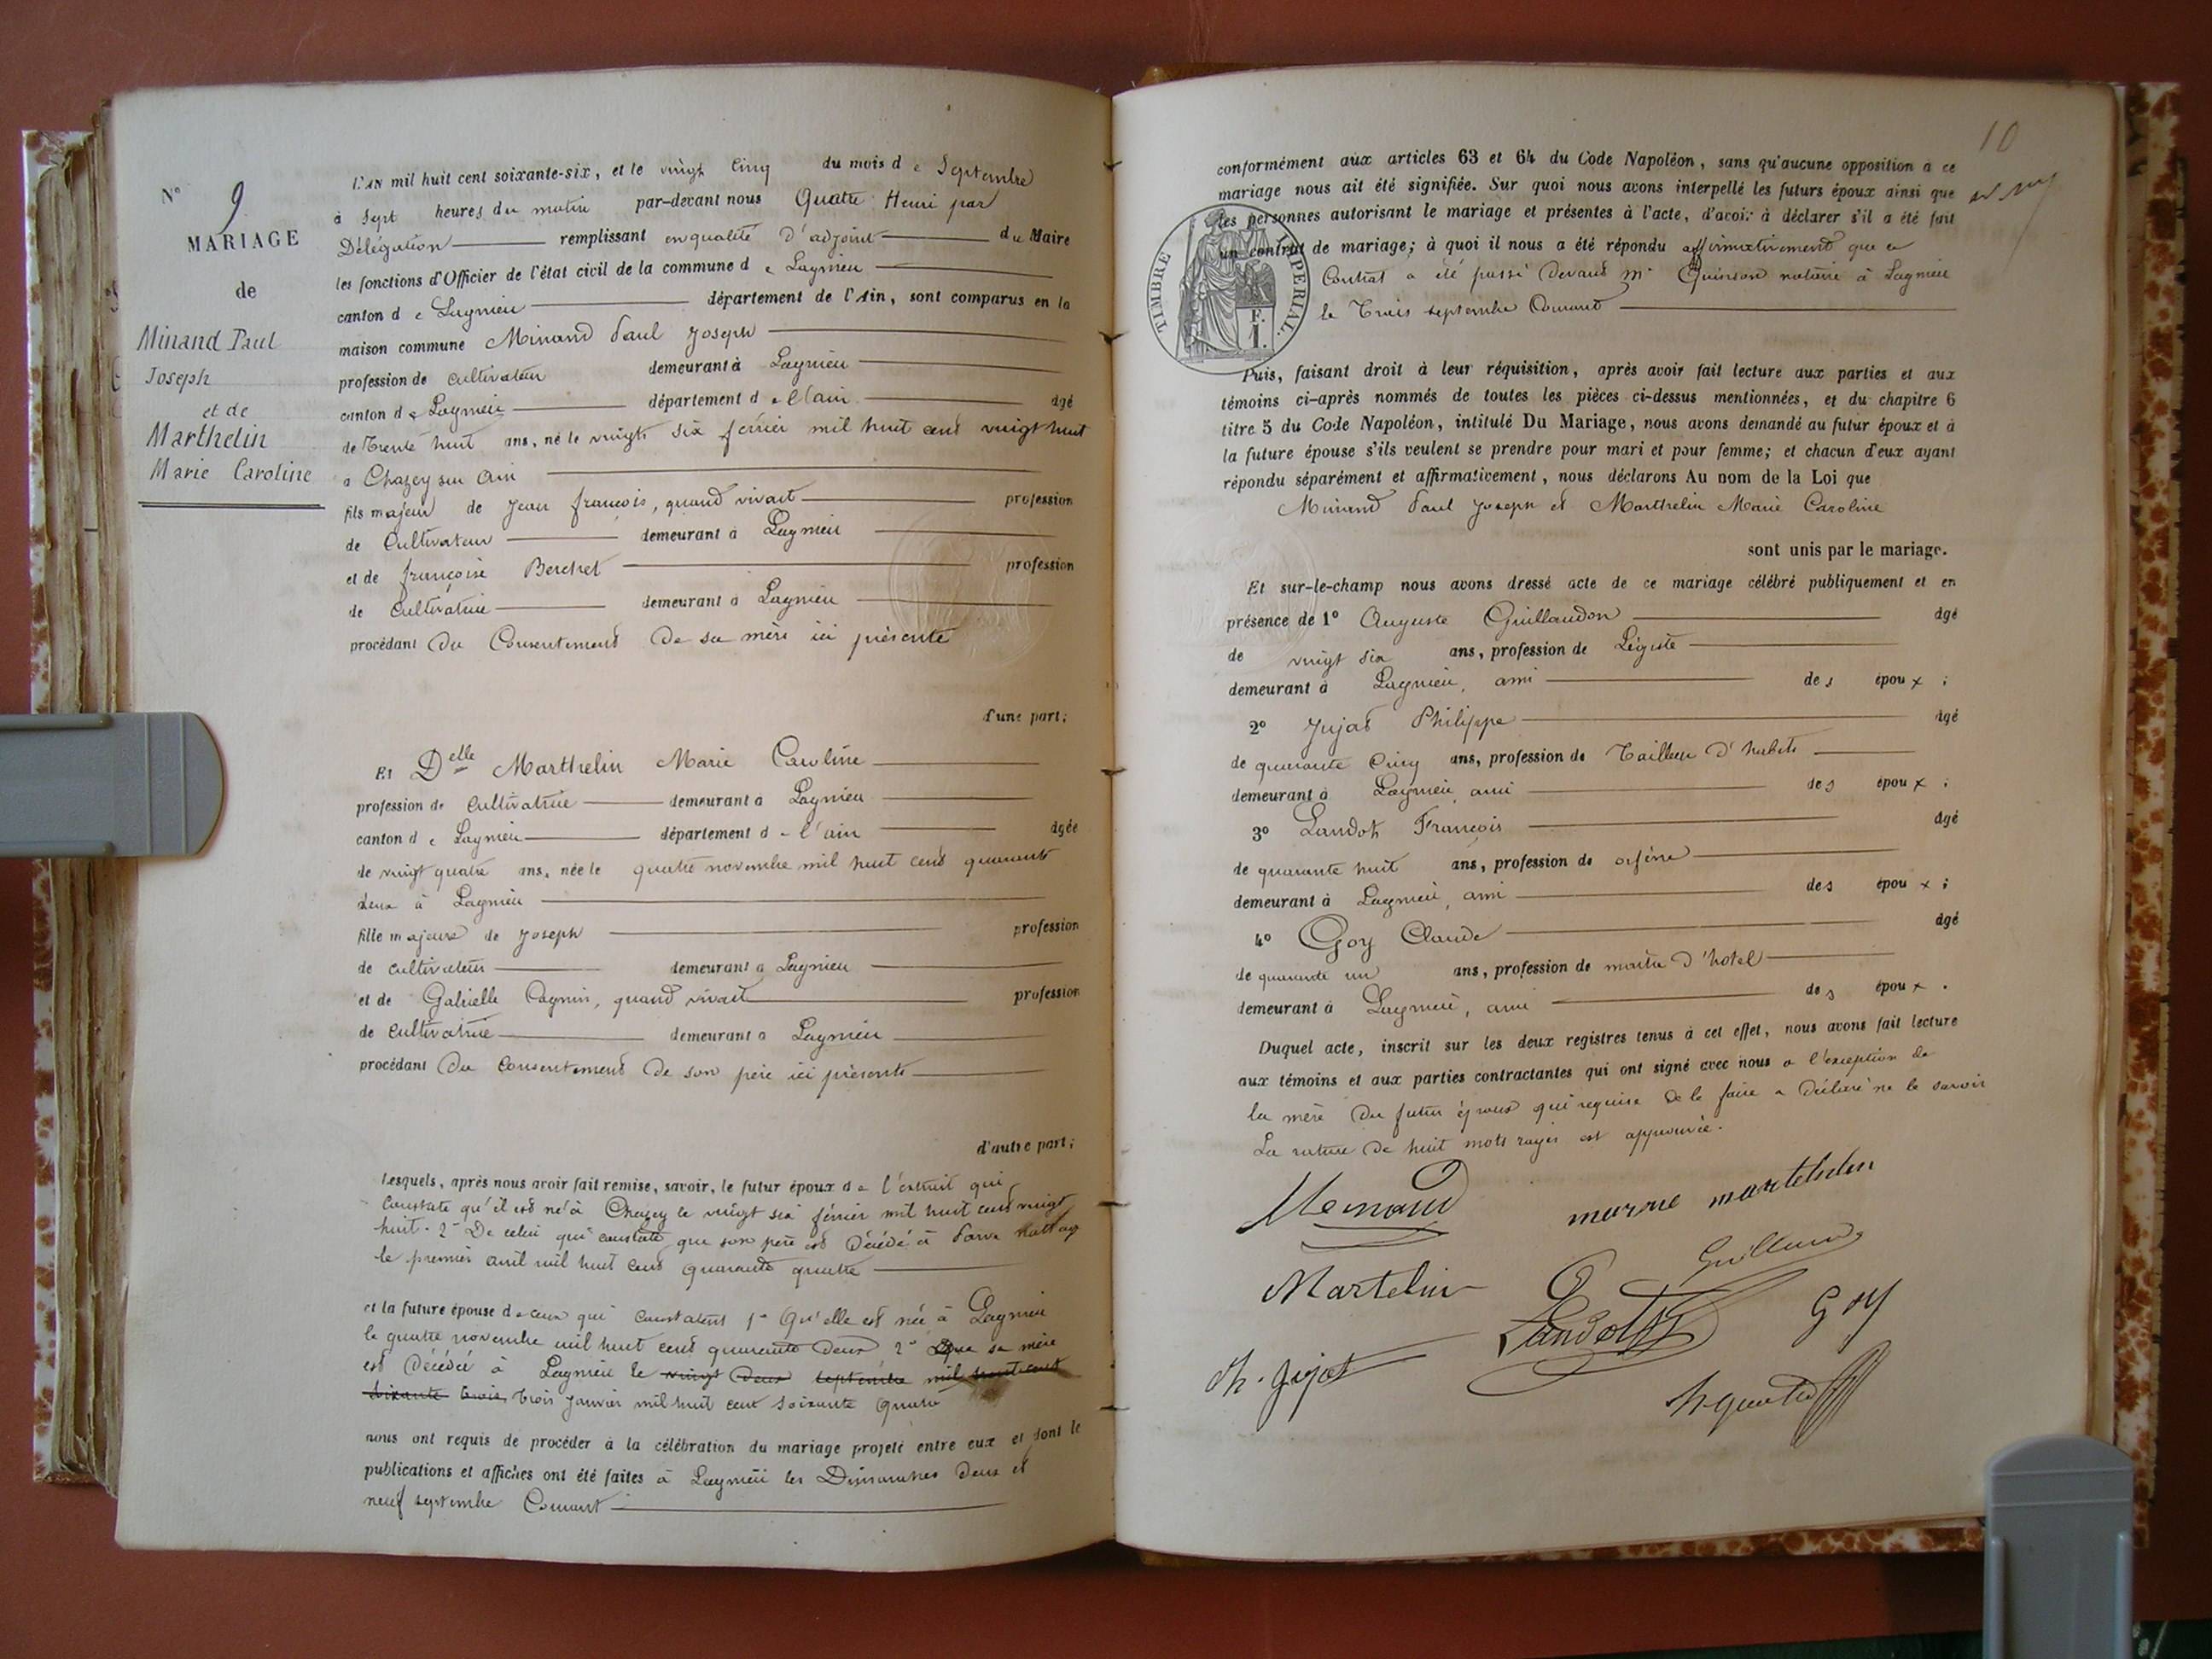 N° 9
MARIAGE
de
Minand Paul
Joseph
et de
Marthelin
Marie Caroline
L'AN mil huit cent soixante-six, et le vingt cinq du mois de Septembre
à sept heures du matin par-devant nous Quatre Henri par
Délégation remplissant en qualité d'adjoint du Maire
les fonctions d'Officier de l'état civil de la commune de Lagnieu
canton de Lagnieu département de l'Ain, sont comparus en la
maison commune Minand Paul Joseph
profession de cultivateur demeurant à Lagnieu
canton de Lagnieu département de l'ain âgé
de Trente huit ans, né le vingt six février mil huit cent vingt huit
à Chazey sur Ain
fils majeur de Jean françois, quand vivait profession
de Cultivateur demeurant à Lagnieu
et de françoise Berchet profession
de Cultivatrice demeurant à Lagnieu
procédant du Consentement de sa mère ici présente
d'une part;
Et Delle Marthelin Marie Caroline
profession de Cultivatrice demeurant à Lagnieu
canton de Lagnieu département de l'ain âgée
de vingt quatre ans, née le quatre novembre mil huit cent quarante
deux à Lagnieu
fille majeure de Joseph profession
de cultivateur demeurant à Lagnieu
et de Gabrielle Cagnin, quand vivait profession
de Cultivatrice demeurant à Lagnieu
procédant du consentement de son père ici présente
d'autre part;
Lesquels, après nous avoir fait remise, savoir, le futur époux de l'extrait qui
constate qu'il est né à Chazey le vingt six février mil huit cent vingt
huit. 2° De celui qui constate que son père est décédé à
le premier avril mil huit cent quarante quatre
et la future épouse de ceux qui constatent 1° Qu'elle est née à Lagnieu
le quatre novembre mil huit cent quarante deux 2° Que sa mère
est décédée à Lagnieu le vingt deux septembre mil huit cent
soixante trois trois janvier mil huit cent soixante quatre
nous ont requis de procéder à la célébration du mariage projeté entre eux et dont le
publications et affiches ont été faites à Lagnieu les Dimanches deux et
neuf septembre Courant
10
conformément aux articles 63 et 64 du Code Napoléon, sans qu'aucune opposition à ce
mariage nous ait été signifiée. Sur quoi nous avons interpellé les futurs époux ainsi que
les personnes autorisant le mariage et présentes à l'acte, d'avoir à déclarer s'il a été fait
un contrat de mariage; à quoi il nous a été répondu affirmativement que ce
Contrat a été passé devant Me Quinson notaire à Lagnieu
le Trois septembre Courant
TIMBRE IMPÉRIAL.
F.
1.
Puis, faisant droit à leur réquisition, après avoir fait lecture aux parties et aux
témoins ci-après nommés de toutes les pièces ci-dessus mentionnées, et du chapitre 6
titre 5 du Code Napoléon, intitulé Du Mariage, nous avons demandé au futur époux et à
la future épouse s'ils veulent se prendre pour mari et pour femme; et chacun d'eux ayant
répondu séparément et affirmativement, nous déclarons Au nom de la Loi que
Minand Paul Joseph et Marthelin Marie Caroline
sont unis par le mariage.
Et sur-le-champ nous avons dressé acte de ce mariage célébré publiquement et en
présence de 1° Auguste Guillaudon âgé
de vingt six ans, profession de Légiste
demeurant à Lagnieu, ami des époux;
2° Jujat Philippe âgé
de quarante cinq ans, profession de Tailleur d'habits
demeurant à Lagnieu, ami des époux;
3° Landot François âgé
de quarante huit ans, profession de orfèvre
demeurant à Lagnieu, ami des époux;
4° Goy Claude âgé
de quarante un ans, profession de maître d'hotel
demeurant à Lagnieu, ami des époux.
Duquel acte, inscrit sur les deux registres tenus à cet effet, nous avons fait lecture
aux témoins et aux parties contractantes qui ont signé avec nous à l'exception de
la mère du futur époux qui requise de le faire a déclaré ne le savoir
La rature de huit mots rayés est approuvée.
Menand
marie martehelin
Martelin
Landot
Goy
Ph. Jujat